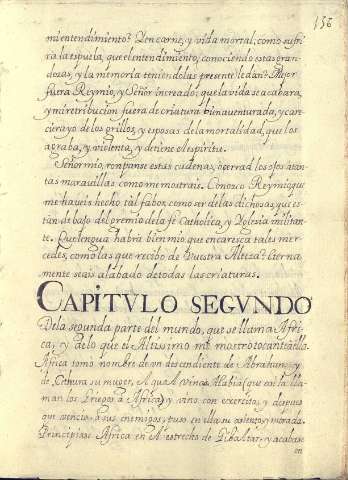 156
mi entendimiento? Y en carne, y vida mortal, como sufri-
ra la espuela, que el entendimiento, conociendo estas gran-
dezas, y la memoria teniendolas presente le dan? Mejor
fuera Rey mio, y Señor increado, que la vida se acabara,
y mi retribucion fuera de criatura bienaventurada, y car-
ciera yo de los grillos, y esposas de la mortalidad, que los
agraba, y violenta, y detiene el espiritu.
Señor mio, rompanse estas cadenas, o cerrad los ojos a tan-
tas maravillas como me mostrais. Conozco Rey mio, que
me haveis hecho tal fabor, como ser de las dichosas, que es-
tan debajo del premio de la fe Catholica, y Yglesia militan-
te. Que lengua habrà bien mio que encaresca tales mer-
cedes, como las que recibo de Vuestra Alteza? Eterna-
mente seais alabado de todas las criaturas.
CAPITVLO SEGVNDO
De la segunda parte del mundo, que se llama Afri-
ca, y de lo que el Altissimo me mostro tocante à ella.
Africa tomo nombre de un descendiente de Abraham, y
de Cethura su muger, que vencio à Labia (que en la lla-
man los Griegos à Africa) y vino con exercito, y despues
que vencio à sus enemigos, tuvo en ella su asiento, y morada.
Principiase Africa en el estrecho de Gibaltar, y acabase
en